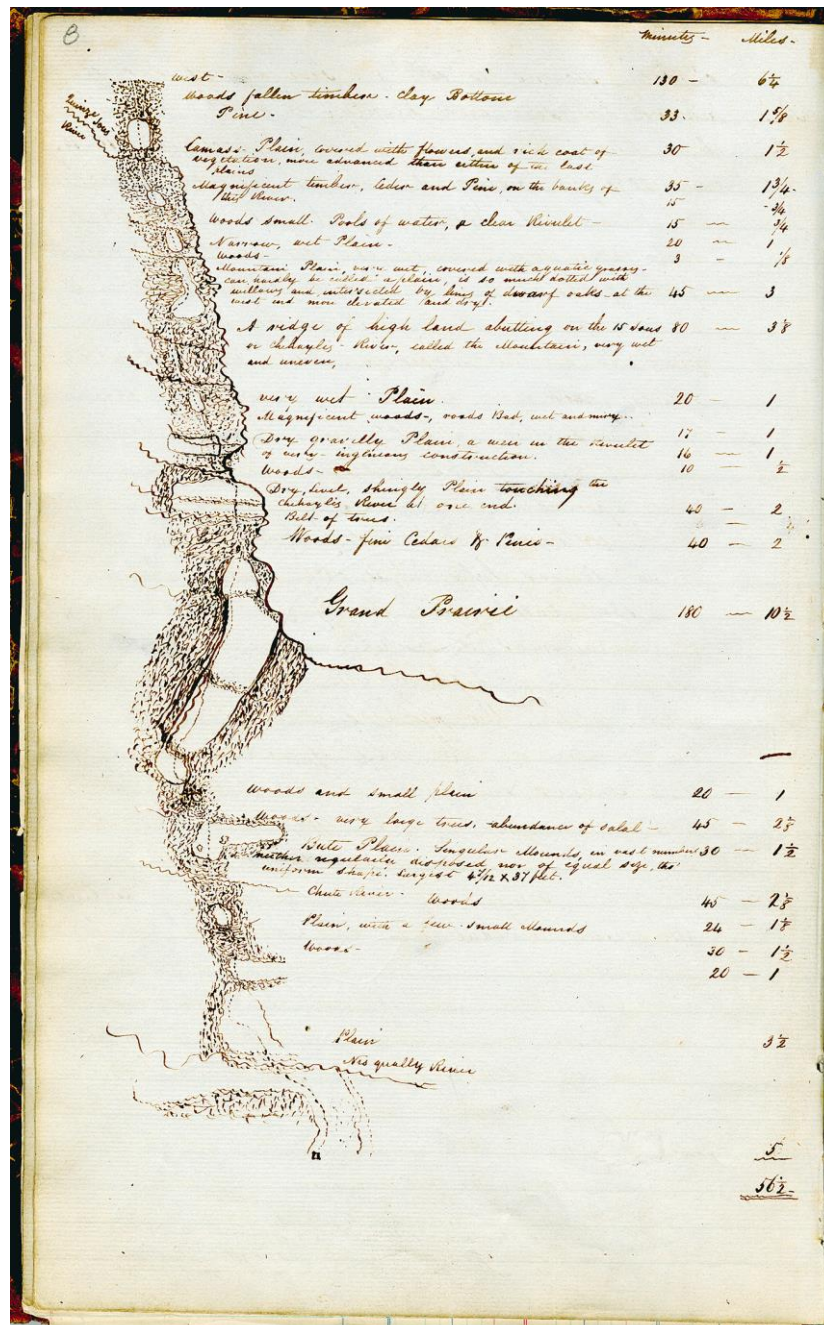 8
Minutes - Miles -
West - 130 - 6¼
Woods fallen timber - Clay Bottom
Pine - 33 - 1⅝
Quinze Sous
River
Camass Plain, covered with flowers, and rich coat of 30 1½
vegetation, more advanced than either of the last
plains
Magnificent timber, Ceder and Pine, on the banks of 35 - 1¾ -
this River. 15 - ¾
Woods small Pools of water, a clear Rivulet - 15 - ¾
Narrow, wet Plain - 20 - 1
Woods - 3 - ⅛
Mountain Plain, very wet, covered with aquatic grasses -
can hardly be called a plain, is so much dotted with
willows and intersected by lines of dwarf oaks - at the 45 - 3
west end more elevated and dry.
A ridge of high land abutting on the 15 Sous 80 - 3
or Chehaylis River, called the Mountain, very wet
and uneven,
very wet Plain. 20 - 1
Magnificent woods -, roads Bad, wet and miry.. 17 - 1
Dry gravilly Plain, a weir in the Rivulet 16 - 1
of very - ingenious construction.
Woods - 10 - ½
Dry, level, shingly Plain touching the
Chehaylis River at one end. 40 - 2
Belt of trees.
Woods - fine Cedars & Pines - 40 - 2
Grand Prairie 180 - 10½
Woods and small plain 20 - 1
Woods - very large trees, abundance of salal - 45 - 2
Bute Plain. Singular Mounds, in vast number 30 - 1½
neither regularly disposed nor of equal size, the
uniform shape. Largest 37 feet.
Chute River - Woods 45 - 2
Plain, with a few small Mounds 24 - 1
Woods - 30 - 1½
20 - 1
Plain 3½
Nisqually River
5
56½ -